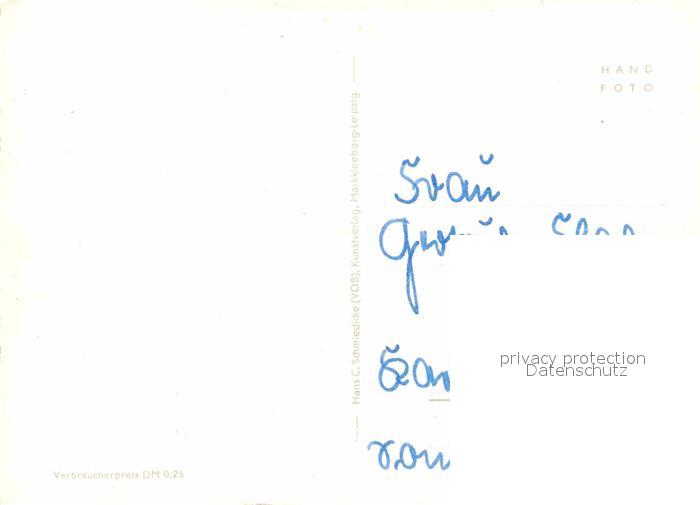 HAND
FOTO
Hans C. Schmiedicke (VOB), Kunstverlag, Markkleeberg-Leipzig
Frau
privacy protection
Datenschutz
Verbraucherpreis DM 0,25